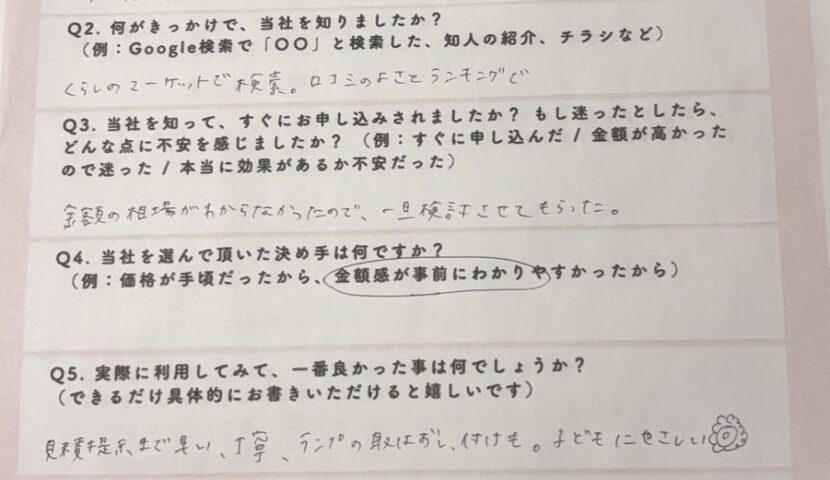 Q2. 何がきっかけで、当社を知りましたか？
（例：Google検索で「〇〇」と検索した、知人の紹介、チラシなど）
くらしのマーケットで検索。口コミのよさとランキングで
Q3. 当社を知って、すぐにお申し込みされましたか？ もし迷ったとしたら、
どんな点に不安を感じましたか？（例：すぐに申し込んだ / 金額が高かった
ので迷った / 本当に効果があるか不安だった）
金額の相場がわからなかったので、一旦検討させてもらった。
Q4. 当社を選んで頂いた決め手は何ですか？
（例：価格が手頃だったから、金額感が事前にわかりやすかったから）
Q5. 実際に利用してみて、一番良かった事は何でしょうか？
（できるだけ具体的にお書きいただけると嬉しいです）
見積提示まで早い、丁寧、ランプの取はずし、付けも。子どもにやさしい